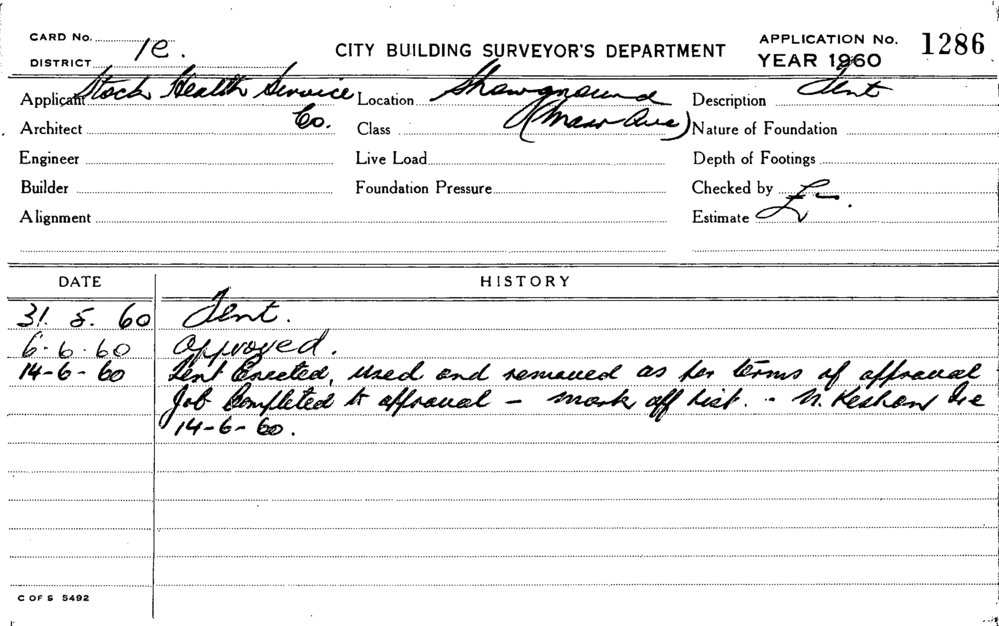 CARD No.
DISTRICT 1e.
CITY BUILDING SURVEYOR'S DEPARTMENT
APPLICATION No. 1286
YEAR 1960
Applicant Stock Health Service Co.
Location Showground
Description Tent
Architect
Class (Main Ave)
Nature of Foundation
Engineer
Live Load
Depth of Footings
Builder
Foundation Pressure
Checked by
Alignment
Estimate
DATE HISTORY
31. 5. 60 Tent.
6.6.60 Approved.
14-6-60 Tent Erected, used and removed as per terms of approval
Job Completed to approval - mark off list. -
14-6-60.
C OF S 5492